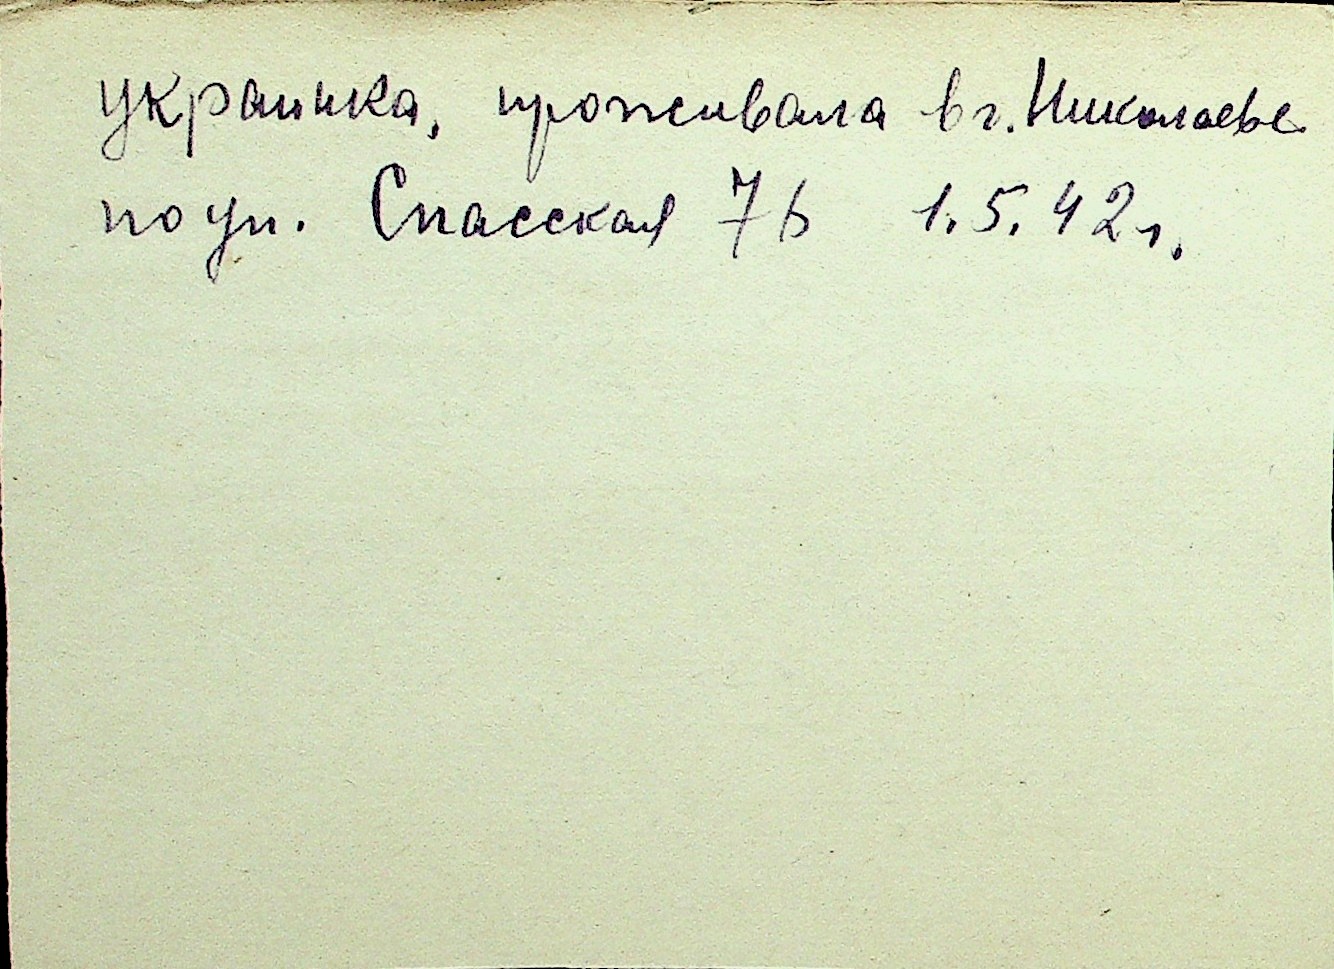 украинка, проживала в г. Николаеве
по ул. Спасская 76 1.5.42 г.